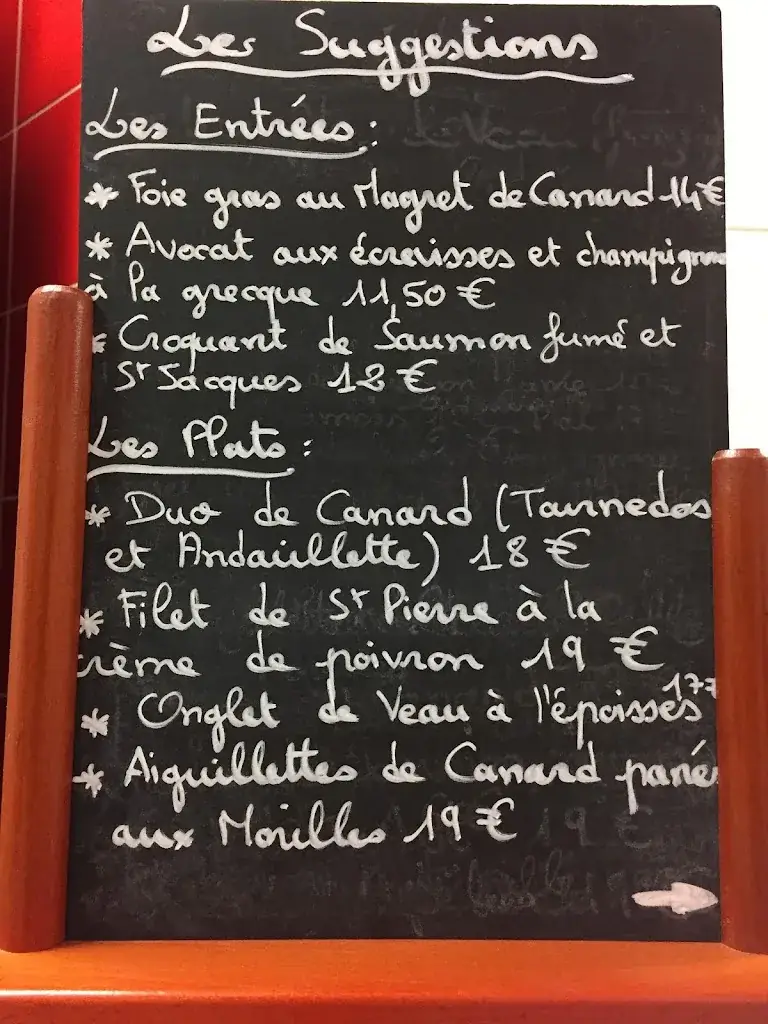 Les Suggestions
Les Entrées :
* Foie gras au Magret de Canard 14 €
* Avocat aux écrevisses et champignons
à la grecque 11,50 €
* Croquant de Saumon fumé et
St Jacques 12 €
Les Plats :
* Duo de Canard (Tournedos
et Andouillette) 18 €
* Filet de St Pierre à la
crème de poivron 19 €
* Onglet de Veau à l'époisses 17
* Aiguillettes de Canard pané
aux Morilles 19 €